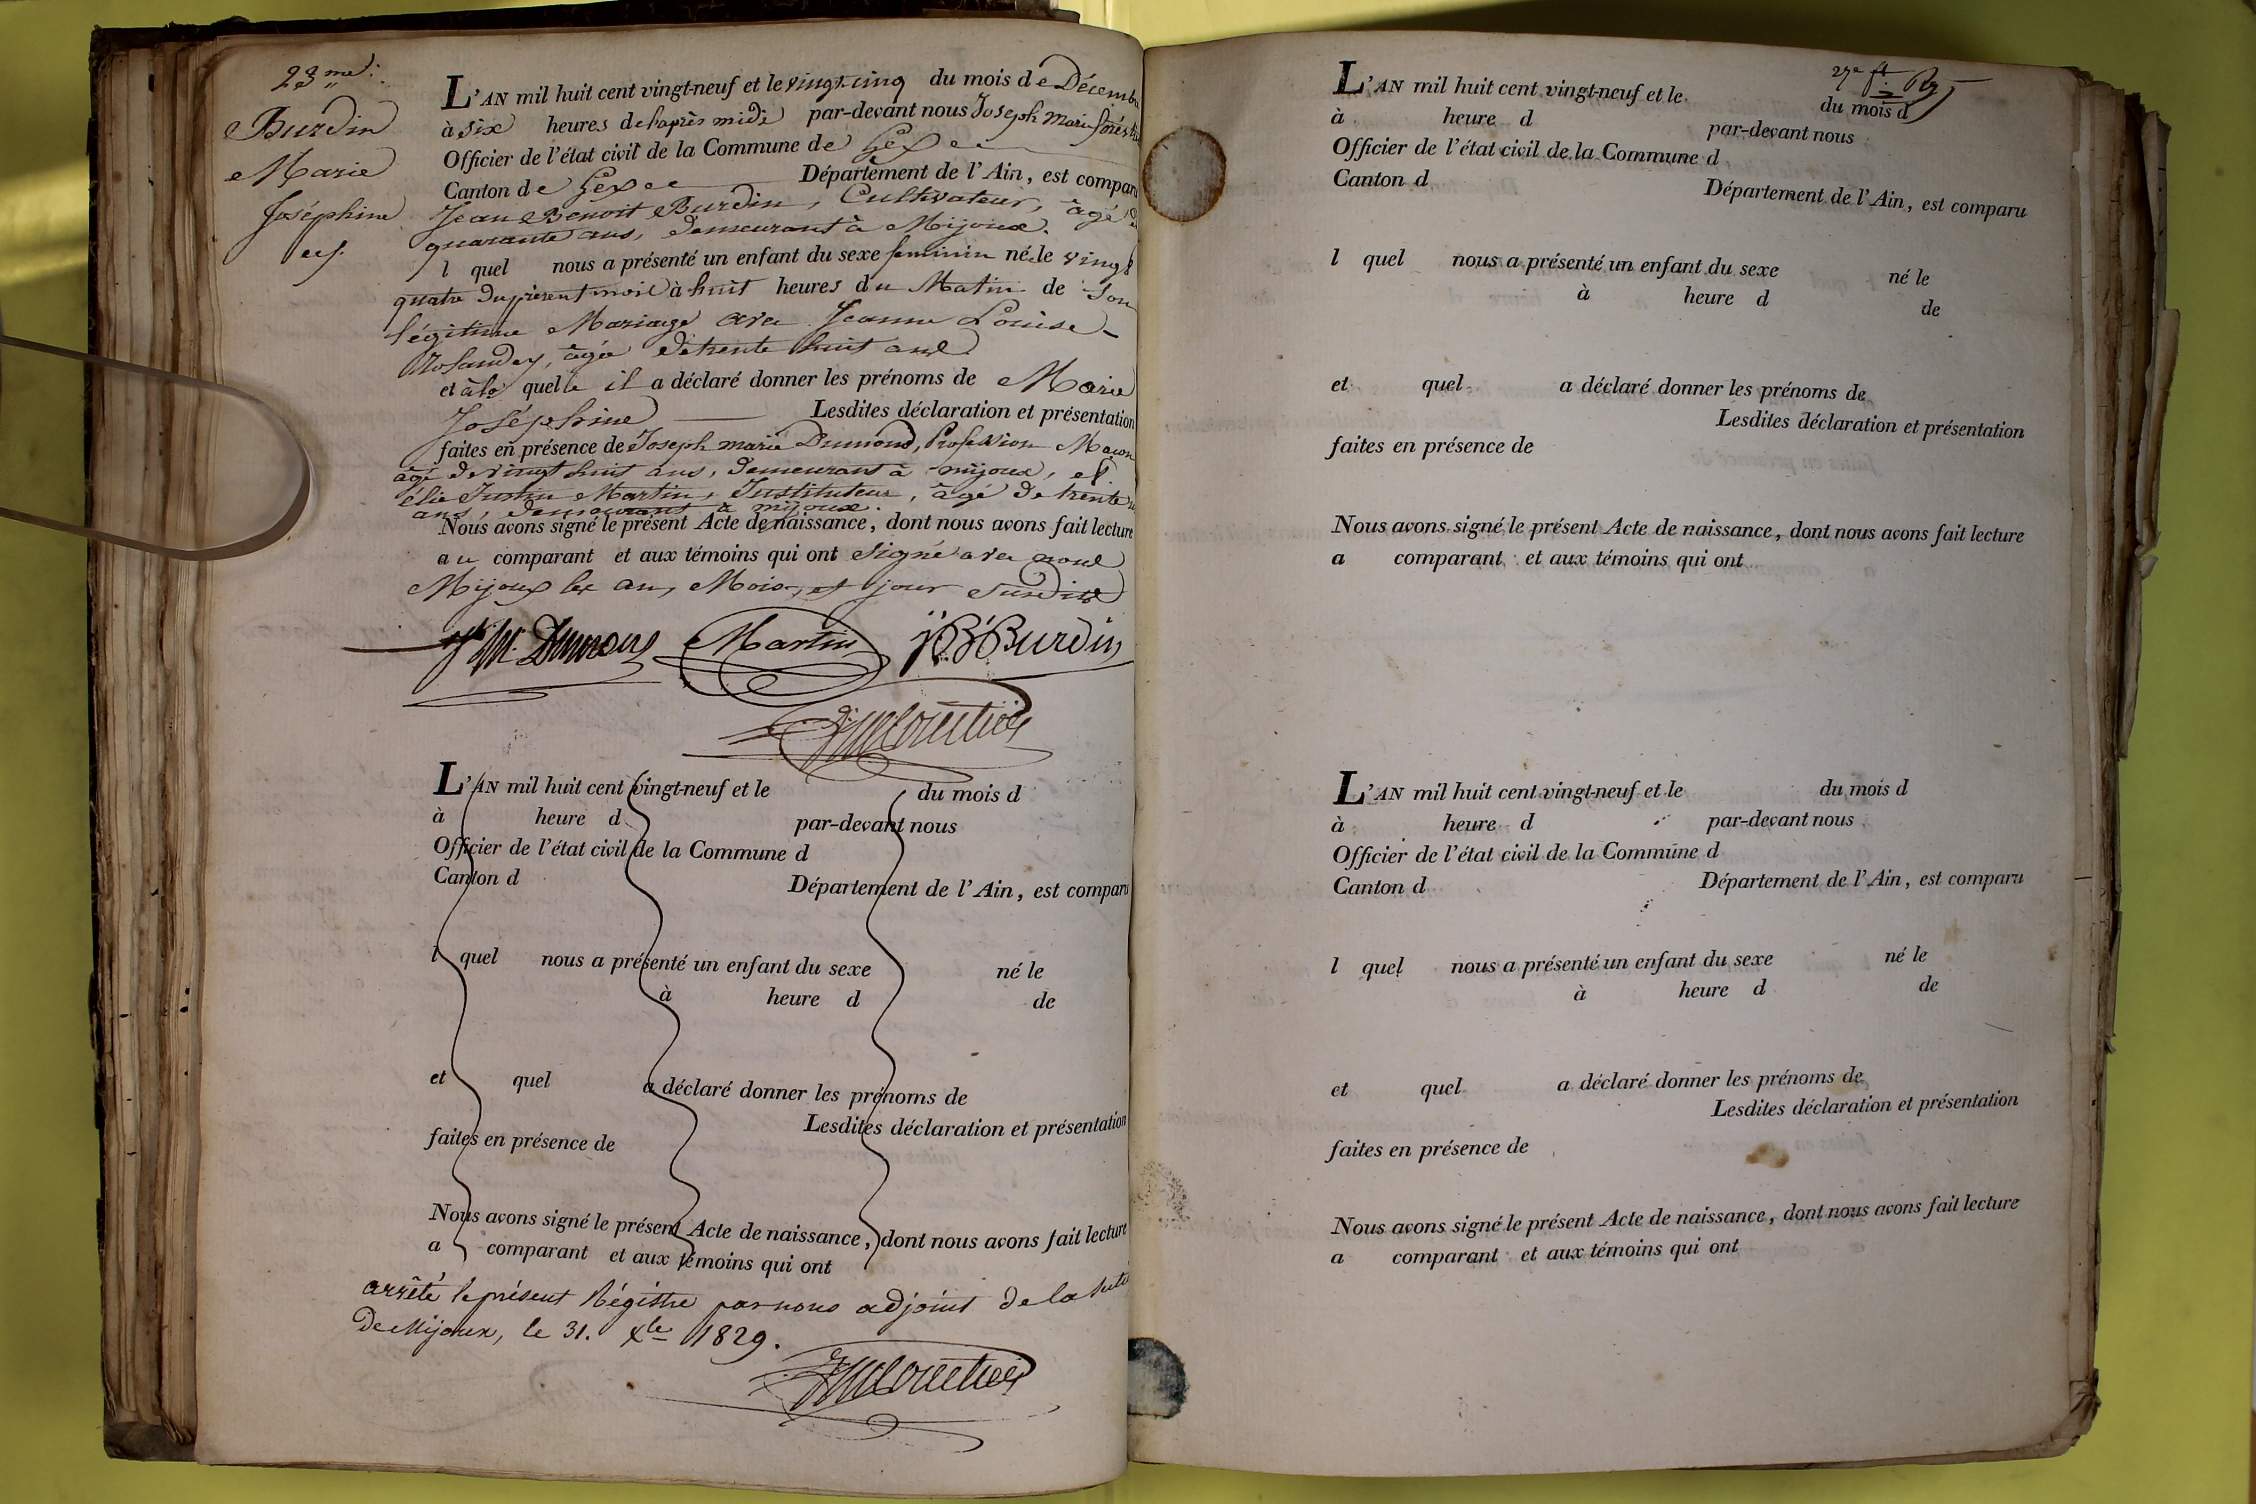 23me
Burdin
Marie
Joséphine
L'AN mil huit cent vingt-neuf et le vingt-cinq du mois de Décembre
à six heures de l'après midi par-devant nous Joseph Marie
Officier de l'état civil de la Commune de Gex
Canton de Gex Département de l'Ain, est comparu
Jean Benoit Burdin, Cultivateur, âgé de
quarante ans, demeurant à Mijoux.
l quel nous a présenté un enfant du sexe feminin née le vingt
quatre du présent mois à huit heures du Matin de son
légitime Mariage avec Jeanne Louise
âgée de trente huit ans
et à la quelle il a déclaré donner les prénoms de Marie
Joséphine Lesdites déclaration et présentation
faites en présence de Joseph marie Dumond, Profession Maçon
âgé de vingt huit ans, demeurant à mijoux, et
élie Justin Martin, Instituteur, âgé de trente
ans, demeurant à mijoux.
Nous avons signé le présent Acte de naissance, dont nous avons fait lecture
au comparant et aux témoins qui ont signé avec nous
Mijoux les an, Mois, et jour susdits
J M. Dumond Martin J B Burdin
L'AN mil huit cent vingt-neuf et le du mois d
à heure d par-devant nous
Officier de l'état civil de la Commune d
Canton d Département de l'Ain, est comparu
l quel nous a présenté un enfant du sexe né le
à heure d de
et quel a déclaré donner les prénoms de
Lesdites déclaration et présentation
faites en présence de
Nous avons signé le présent Acte de naissance, dont nous avons fait lecture
a comparant et aux témoins qui ont
arrêté le présent Régistre par nous adjoint de la
de Mijoux, le 31. Xbre 1829.
27e ft
L'AN mil huit cent vingt-neuf et le du mois d
à heure d par-devant nous
Officier de l'état civil de la Commune d
Canton d Département de l'Ain, est comparu
l quel nous a présenté un enfant du sexe né le
à heure d de
et quel a déclaré donner les prénoms de
Lesdites déclaration et présentation
faites en présence de
Nous avons signé le présent Acte de naissance, dont nous avons fait lecture
a comparant et aux témoins qui ont
L'AN mil huit cent vingt-neuf et le du mois d
à heure d par-devant nous
Officier de l'état civil de la Commune d
Canton d Département de l'Ain, est comparu
l quel nous a présenté un enfant du sexe né le
à heure d de
et quel a déclaré donner les prénoms de
Lesdites déclaration et présentation
faites en présence de
Nous avons signé le présent Acte de naissance, dont nous avons fait lecture
a comparant et aux témoins qui ont